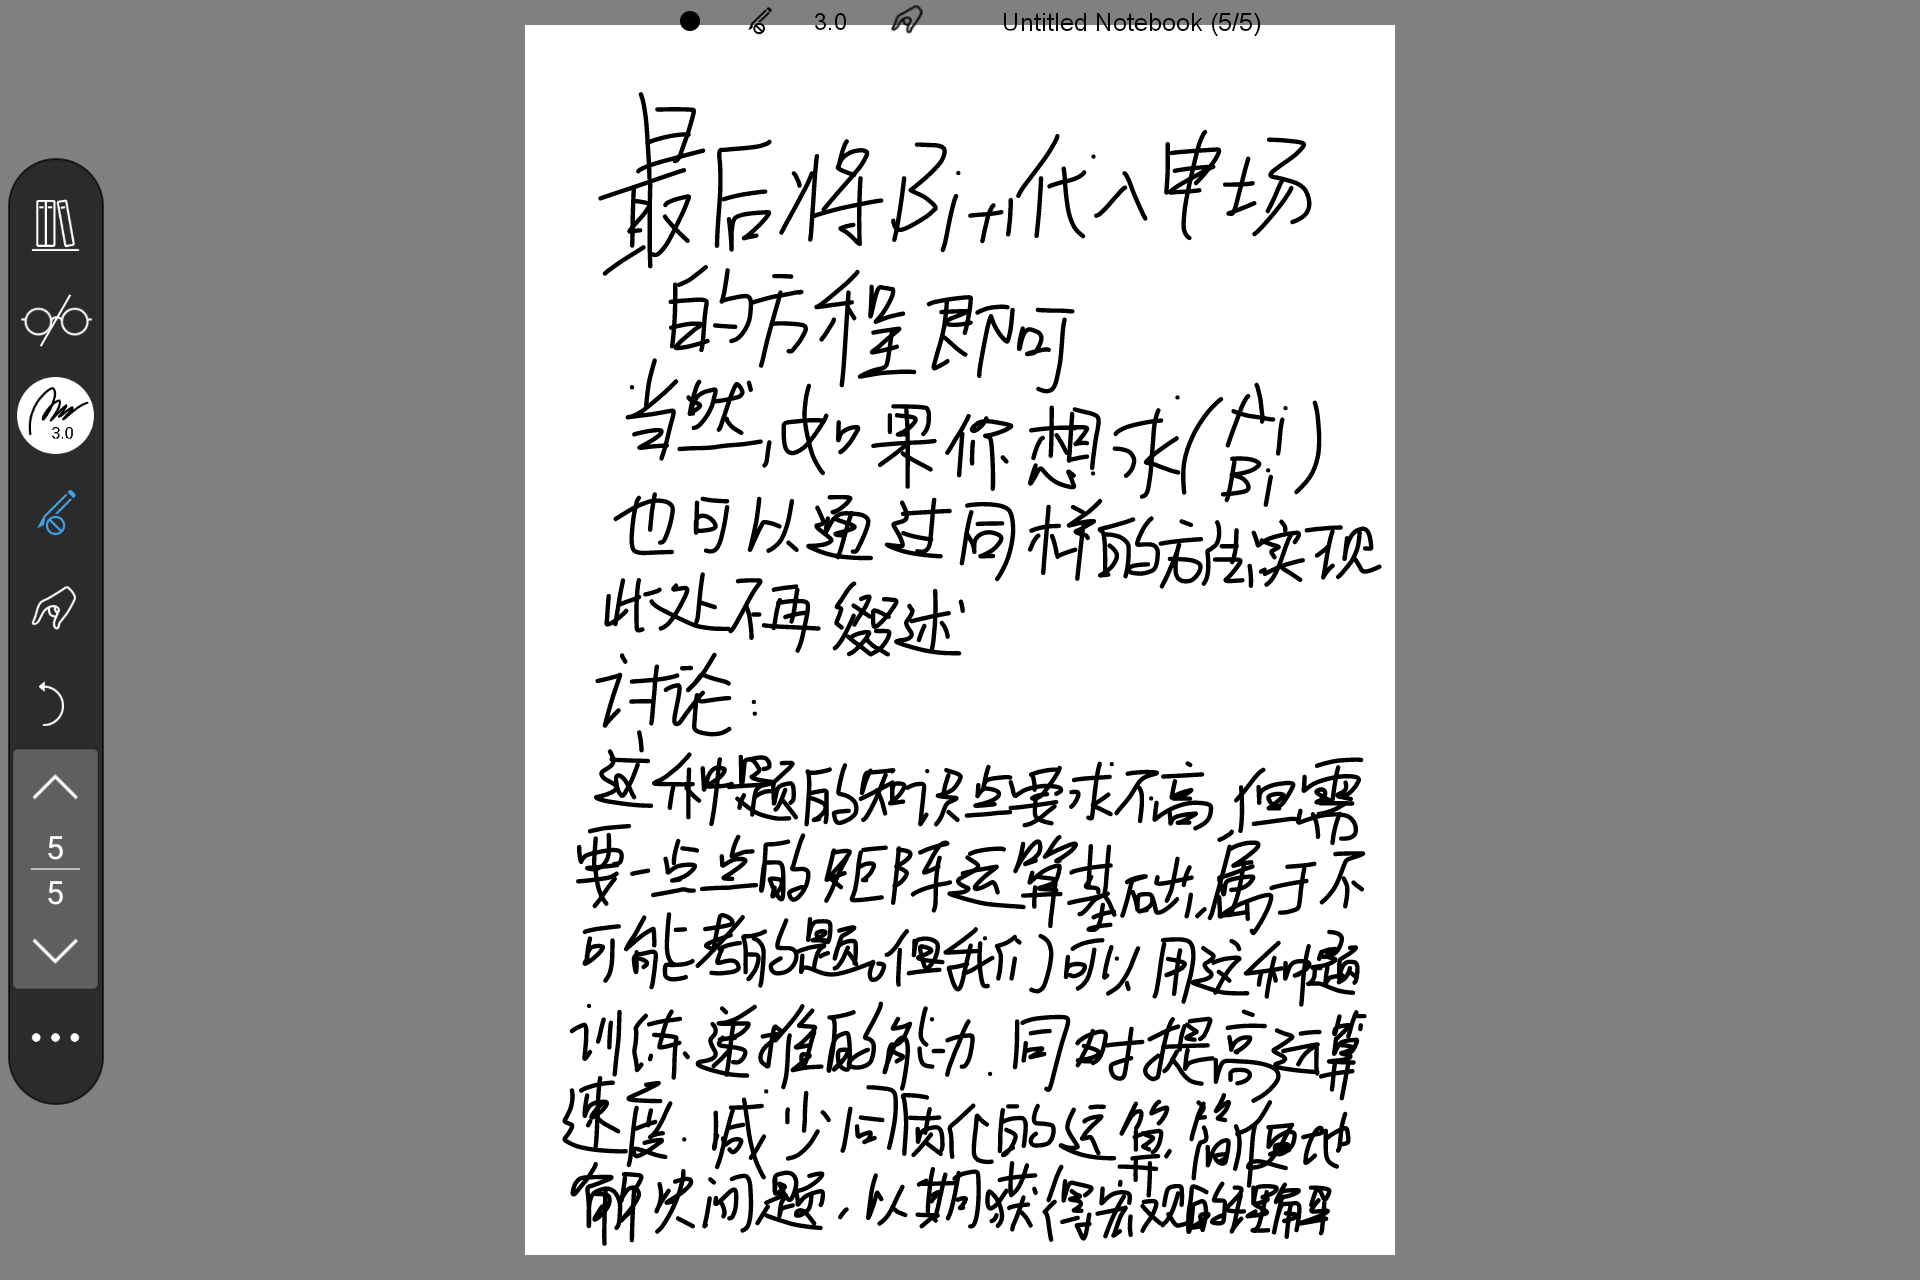 3.0
Untitled Notebook (5/5)
3.0
5
5
最后将Bi+1代入电场
的方程即可
当然,如果你想求(Ai Bi)
也可以通过同样的方法实现
此处不再缀述
讨论:
这种题的知识点要求不高,但需
要一点点的矩阵运算基础,属于不
可能考的题。但我们可以用这种题
训练递推的能力.同时提高运算
速度.减少同质化的运算,简便地
解决问题,以期获得宏观的理解